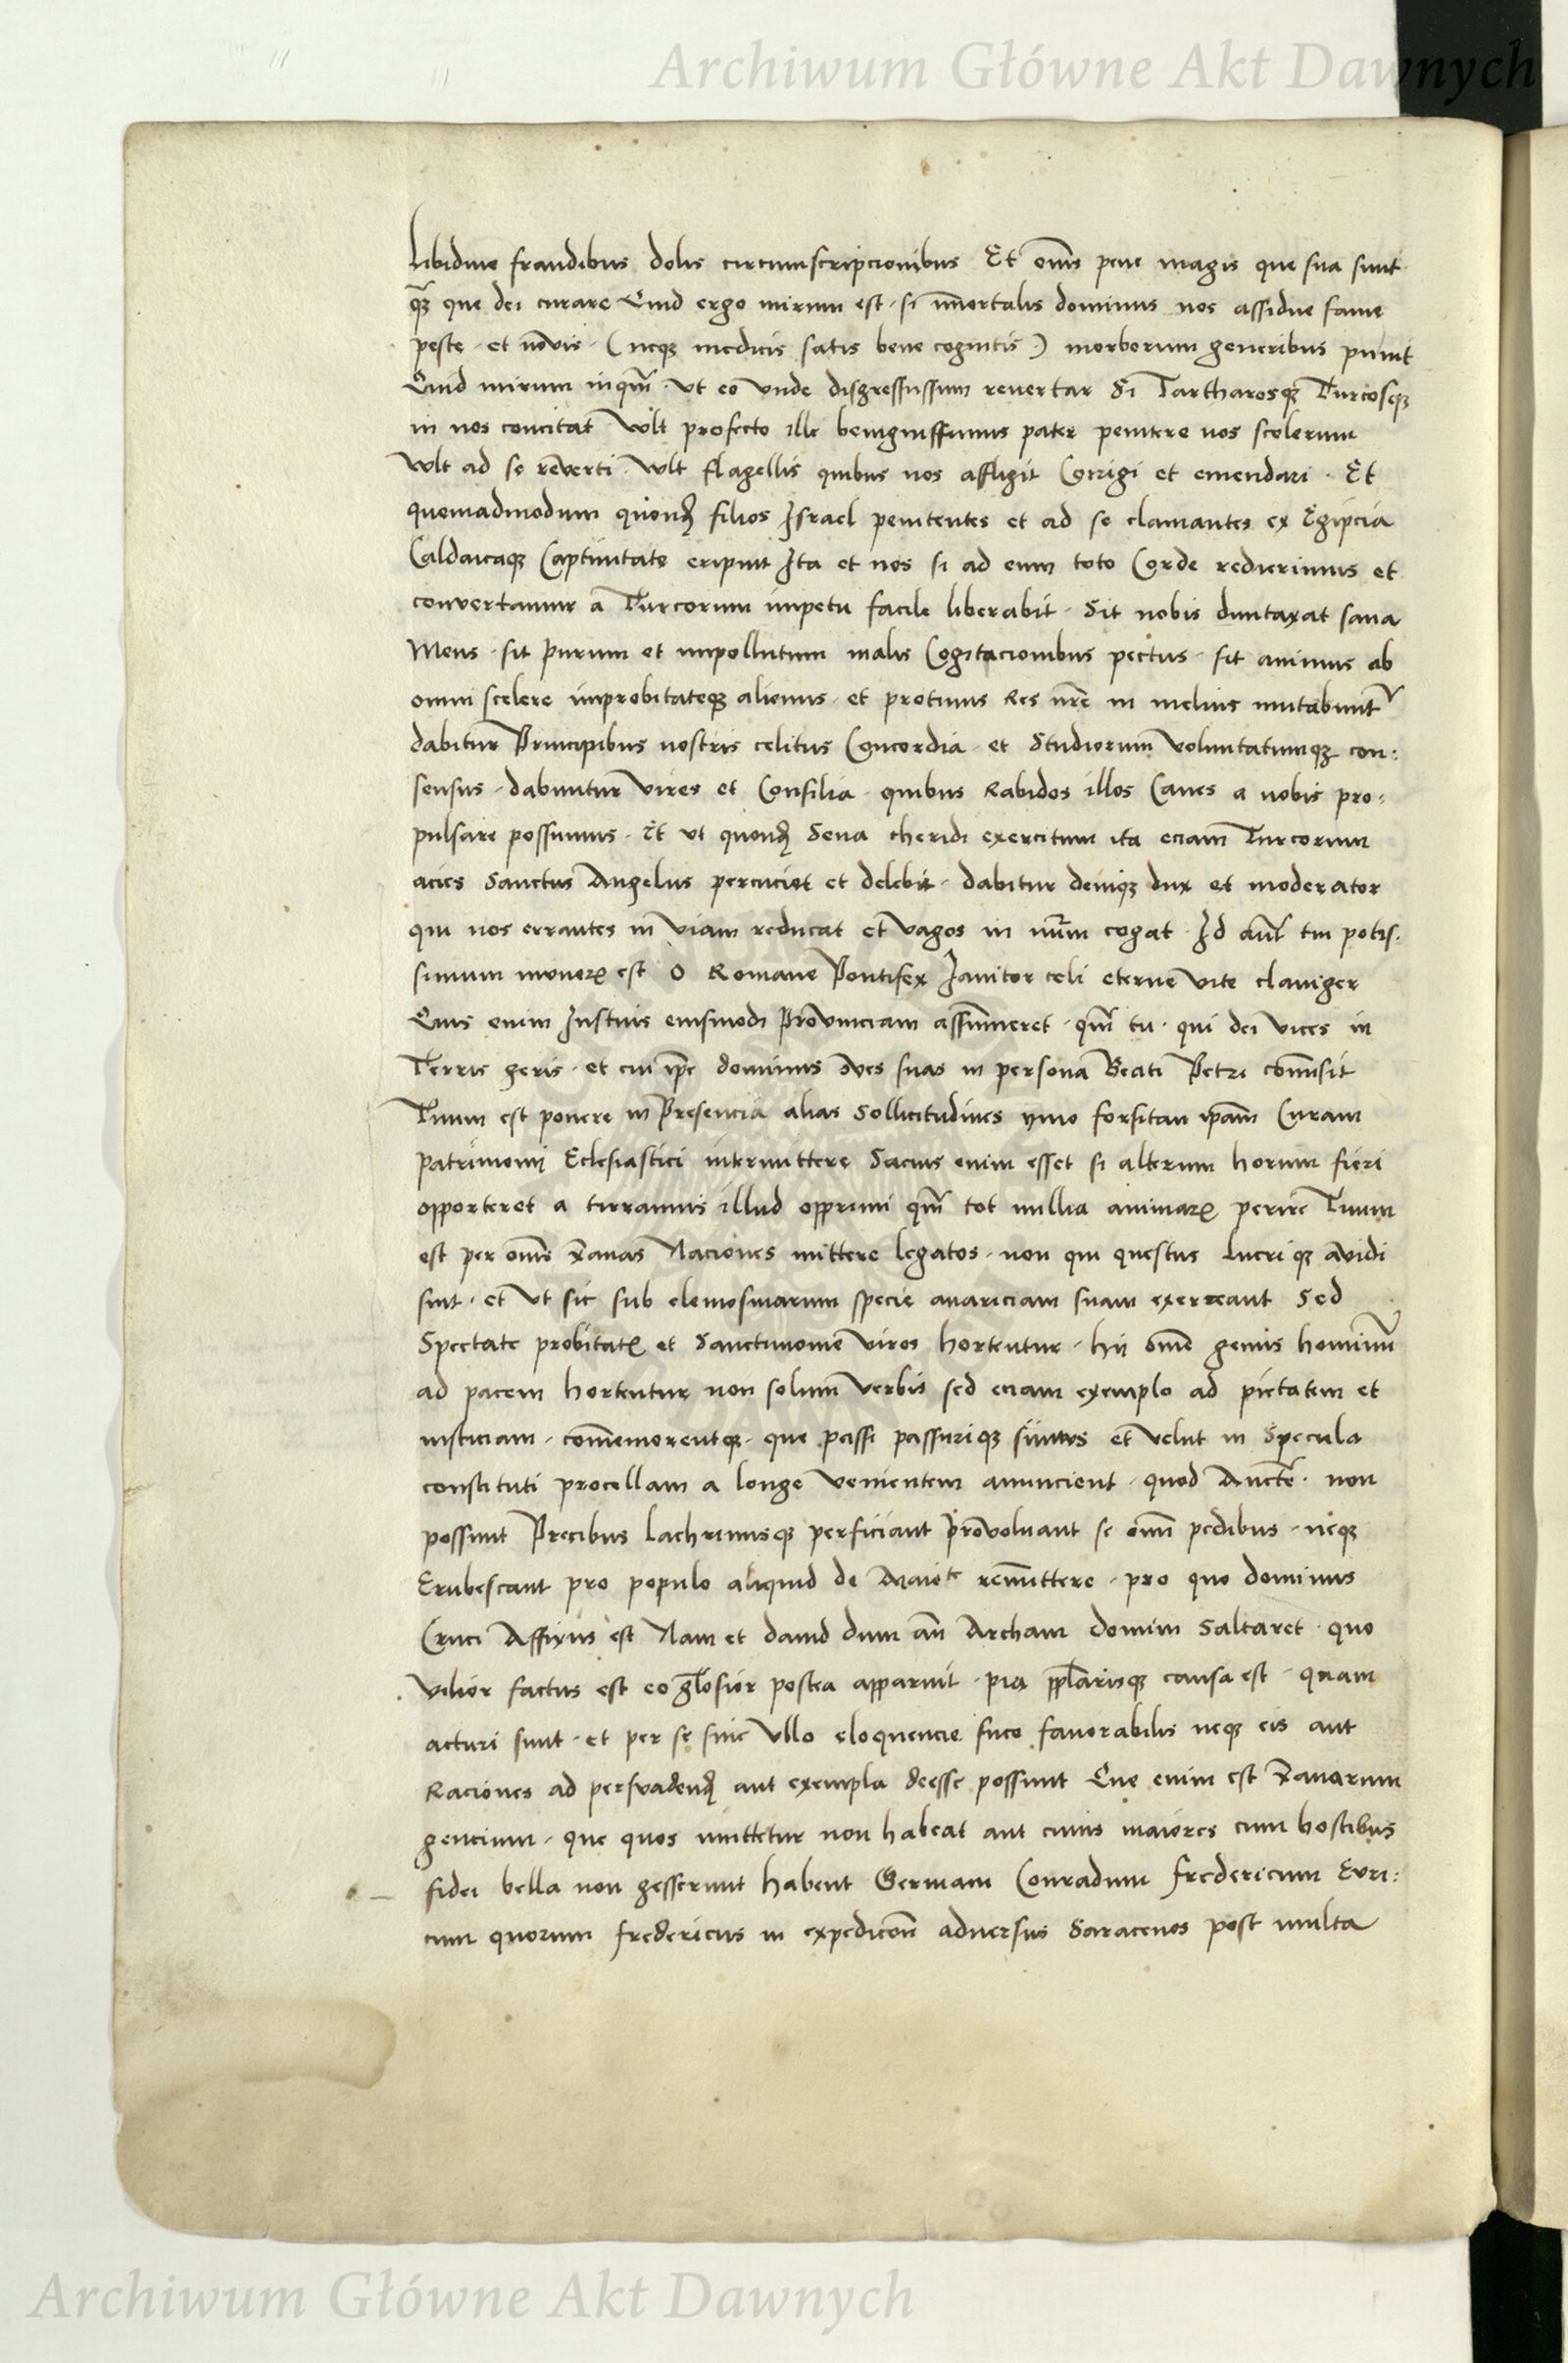 Archiwum Główne Akt Dawnych
Libidine fraudibus dolis circumscripcionibus Et om̄s pene magis que sua sunt
qͣꝫ que dei curare Quid ergo mirum est · si immortalis dominus nos assidue fame
peste · et nōvis · ( neqꝫ medicis satis bene cognitis · ) morborum generibus punit
Quid mirum inqm̄ · ut eo unde disgressussum revertar Si Tartharosqꝫ Turcosqꝫ
in nos concitat Vult profecto ille benignissimus pater penitere nos scelerum
Vult ad se reverti Vult flagellis quibus nos affligit Corrigi et emendari · Et
quemadmodum quondꝫ filios Israel penitentes et ad se clamantes ex Egipcia
Caldaicaqꝫ Captivitate eripuit Ita et nos si ad eum toto Corde redierimus et
convertamur a Turcorum impetu facile liberabit · Sit nobis duntaxat sana
Mens · sit purum et impollutum malis Cogitacionibus pectus · sit animus ab
omni scelere improbitateqꝫ alienus · et protinus Res nr̄e in melius mutabunt᷑
dabitur Principibus nostris celitus Concordia · et Studiorum Voluntatumqꝫ con:
sensus · dabuntur Vires et Consilia · quibus Rabidos illos Canes a nobis pro:
pulsare possumus · Et ut quondꝫ Sena cheridi exercitum ita eciam Turcorum
acies Sanctus Angelus percuciet et delebit · dabitur deniqꝫ dux et moderator
qui nos errantes in Viam reducat et Vagos in unum cogat · Id aut̄ tm̄ potis:
simum munerꝝ est O Romane Pontifex Ianitor celi eterne Vite claviger
Quis enim Iustius eiusmodi Provinciam assumeret · qm̄ tu · qui dei vices in
Terris geris · et cui ip̄e dominus oves suas in persona Beati Petri com̄isit
Tuum est ponere in Presencia alias Sollicitudines ymo forsitan ip̄am Curam
patrimonij Eclesiastici intermittere Sacius enim esset si alterum horum fieri
opporteret a tirrannis illud opprimi qm̄ tot millia animarꝝ perire Tuum
est per om̄s x̄ianas Naciones mittere legatos · non qui questus lucriqꝫ avidi
sint · et ut sic sub elemosinarum specie avariciam suam exerceant Sed
Spectate probitatꝭ et Sanctimonie Viros hortentur · hij om̄e genus hominū
ad pacem hortentur non solum Verbis sed eciam exemplo ad pietatem et
iusticiam · com̄emorentqꝫ · que passi passuriqꝫ simus et Velut in Specula
constituti procellam a longe Venientem anuncient · quod Auctē · non
possunt Precibus lachrimisqꝫ perficiant Provolvant se om̄i pedibus · neqꝫ
Erubescant pro populo aliquid de Maiote remittere · pro quo dominus
Cruci Affixus est Nam et david dum an̄ Archam Domini Saltaret · quo
Vilior factus est eo gl̄osior postea apparuit · pia ppl̄arisqꝫ causa est · quam
acturi sunt · et per se sine Ullo eloquencie fuco favorabilis neqꝫ eis aut
Raciones ad persuadendꝫ aut exempla deesse possunt Que enim est x̄ianarum
gencium · que quos imittetur non habeat aut cuius maiores cum hostibus
fidei bella non gesserunt habent Germani Conradum fredericum Enri:
cum quorum fredericus in expedicōn adversus Saracenos post multa
Archiwum Główne Akt Dawnych